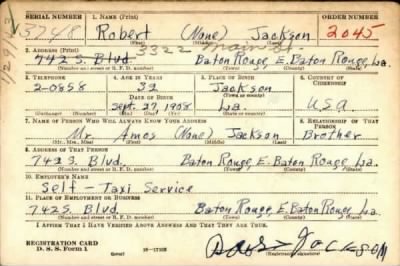 SERIAL NUMBER 1. NAME (Print) ORDER NUMBER
Robert (None) Jackson 2045
(First) (Middle) (Last)
3322 Main St
2. ADDRESS (Print)
742 S. Blvd. Baton Rouge, E. Baton Rouge, La.
(Number and street or R. F. D. number) (Town) (County) (State)
3. TELEPHONE 4. AGE IN YEARS 5. PLACE OF BIRTH 6. COUNTRY OF CITIZENSHIP
2-0858 32 Jackson
DATE OF BIRTH (Town or county)
Sept. 27, 1908 La. USA
(Mo.) (Day) (Yr.) (State or country)
7. NAME OF PERSON WHO WILL ALWAYS KNOW YOUR ADDRESS 8. RELATIONSHIP OF THAT PERSON
Mr. Amos (None) Jackson Brother
(Mr., Mrs., Miss) (First) (Middle) (Last)
9. ADDRESS OF THAT PERSON
742 S. Blvd. Baton Rouge, E. Baton Rouge, La.
(Number and street or R. F. D. number) (Town) (County) (State)
10. EMPLOYER'S NAME
Self - Taxi Service
11. PLACE OF EMPLOYMENT OR BUSINESS
742 S. Blvd. Baton Rouge, E. Baton Rouge, La.
(Number and street or R. F. D. number) (Town) (County) (State)
I AFFIRM THAT I HAVE VERIFIED ABOVE ANSWERS AND THAT THEY ARE TRUE.
REGISTRATION CARD
D. S. S. Form 1 (over) 16-17105